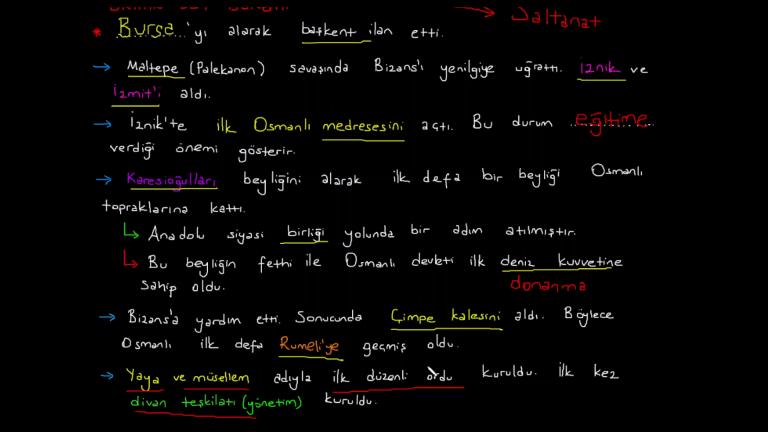 Saltanat
* Bursa'yı alarak başkent ilan etti.
→ Maltepe (Palekanon) savaşında Bizans'ı yenilgiye uğrattı. İznik ve
İzmit'i aldı.
→ İznik'te ilk Osmanlı medresesini açtı. Bu durum eğitime
verdiği önemi gösterir.
→ Karesioğulları beyliğini alarak ilk defa bir beyliği Osmanlı
topraklarına kattı.
Anadolu siyasi birliği yolunda bir adım atılmıştır.
Bu beyliğin fethi ile Osmanlı devleti ilk deniz kuvvetine
sahip oldu. donanma
→ Bizans'a yardım etti. Sonucunda Çimpe kalesini aldı. Böylece
Osmanlı ilk defa Rumeli'ye geçmiş oldu.
→ Yaya ve müsellem adıyla ilk düzenli ordu kuruldu. İlk kez
divan teşkilatı (yönetim) kuruldu.